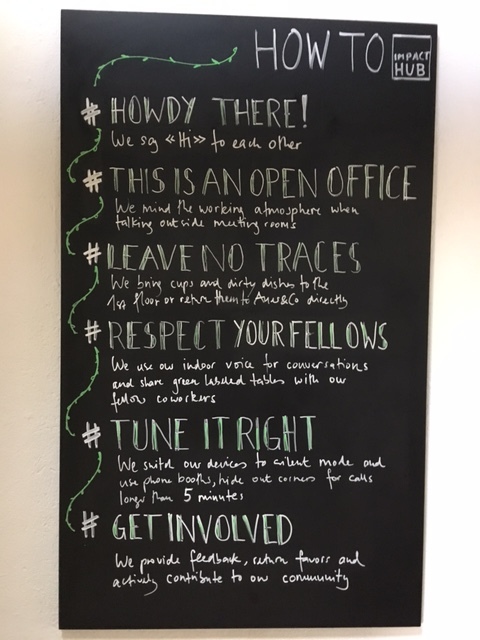 HOW TO IMPACT HUB
# HOWDY THERE!
We say «Hi» to each other
# THIS IS AN OPEN OFFICE
We mind the working atmosphere when
talking outside meeting rooms
# LEAVE NO TRACES
We bring cups and dirty dishes to the
1st floor or return them to directly
# RESPECT YOUR FELLOWS
We use our indoor voice for conversations
and share green labeled tables with our
fellow coworkers
# TUNE IT RIGHT
We switch our devices to silent mode and
use phone booths, hide out corners for calls
longer than 5 minutes
# GET INVOLVED
We provide feedback, return favors and
actively contribute to our community